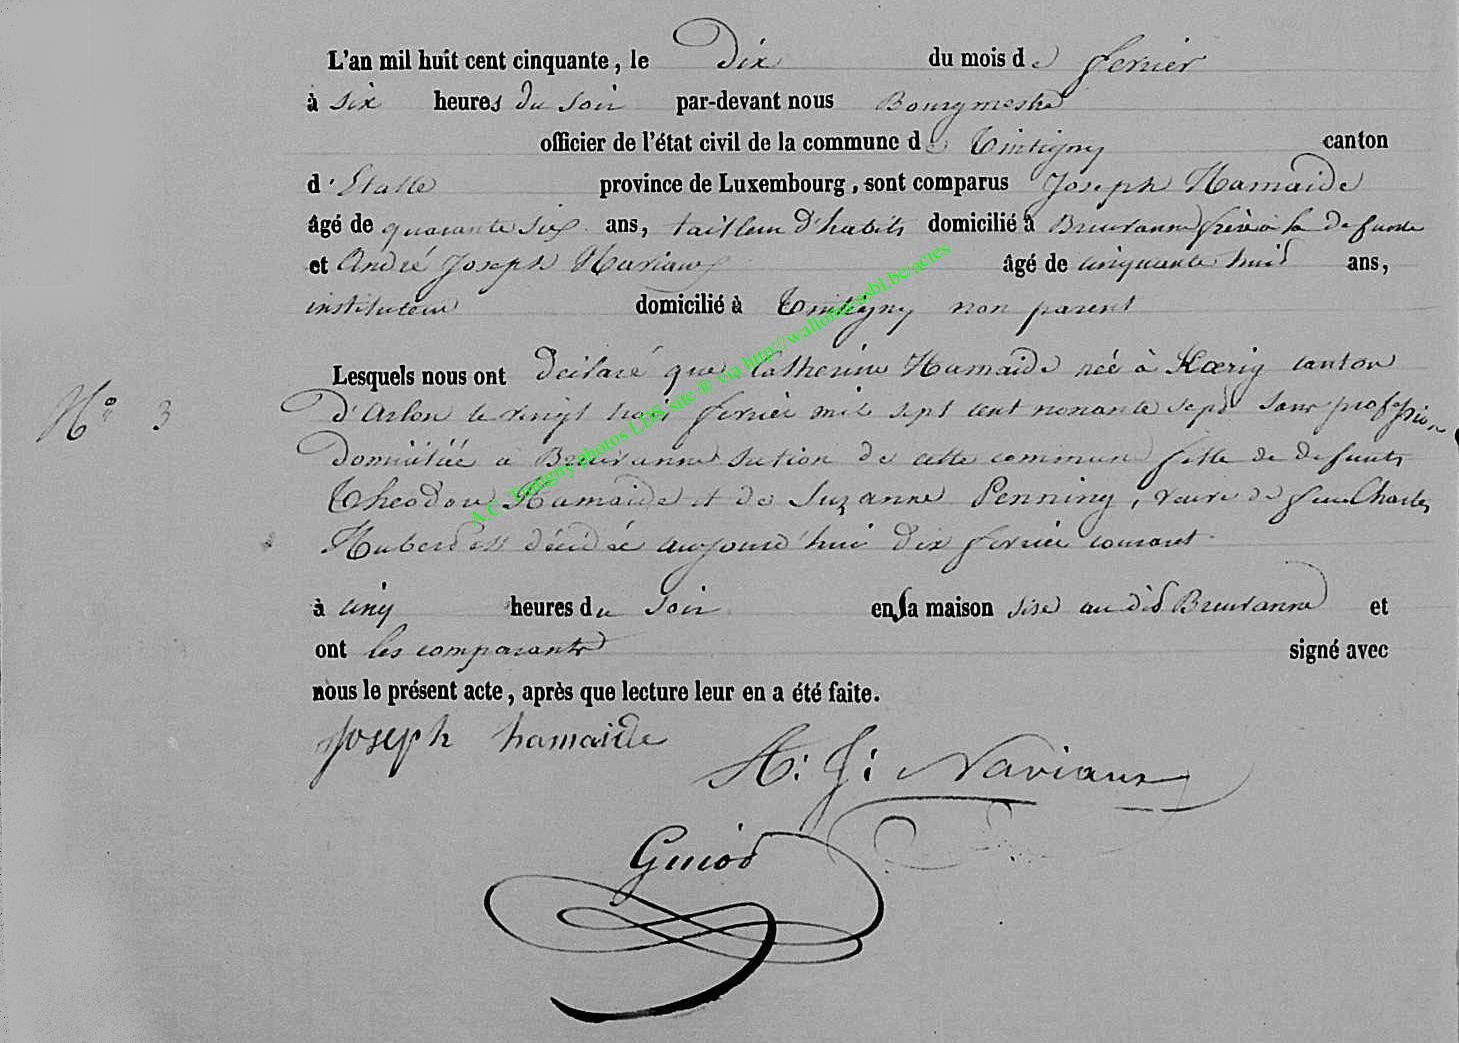 L'an mil huit cent cinquante, le dix du mois de fevrier
à six heures du soir par-devant nous Bourgmestre
officier de l'état civil de la commune de Tintigny canton
d'Etalle province de Luxembourg, sont comparus Joseph Hamaide
âgé de quarante six ans, tailleur d'habits domicilié à Breuvanne frère à la defunte
et André Joseph Naviaux âgé de cinquante huit ans,
instituteur domicilié à Tintigny non parent
Lesquels nous ont déclaré que Catherine Hamaide née à Kœrig canton
N° 3
d'Arlon le vingt trois fevrier mil sept cent nonante sept sans profession
domiciliée a Breuvanne section de cette commune fille de defunts
Theodore Hamaide et de Suzanne Penning, veuve de feu Charles
Hubert est décédée aujourd'hui dix fevrier courant
à cinq heures du soir en sa maison sise au dit Breuvanne et
ont les comparants signé avec
nous le présent acte, après que lecture leur en a été faite.
Joseph hamaide
A: J: Naviaux
Guiot
A.C. Tintigny photos LDS site ® via http://wallonica-asbl.be/actes